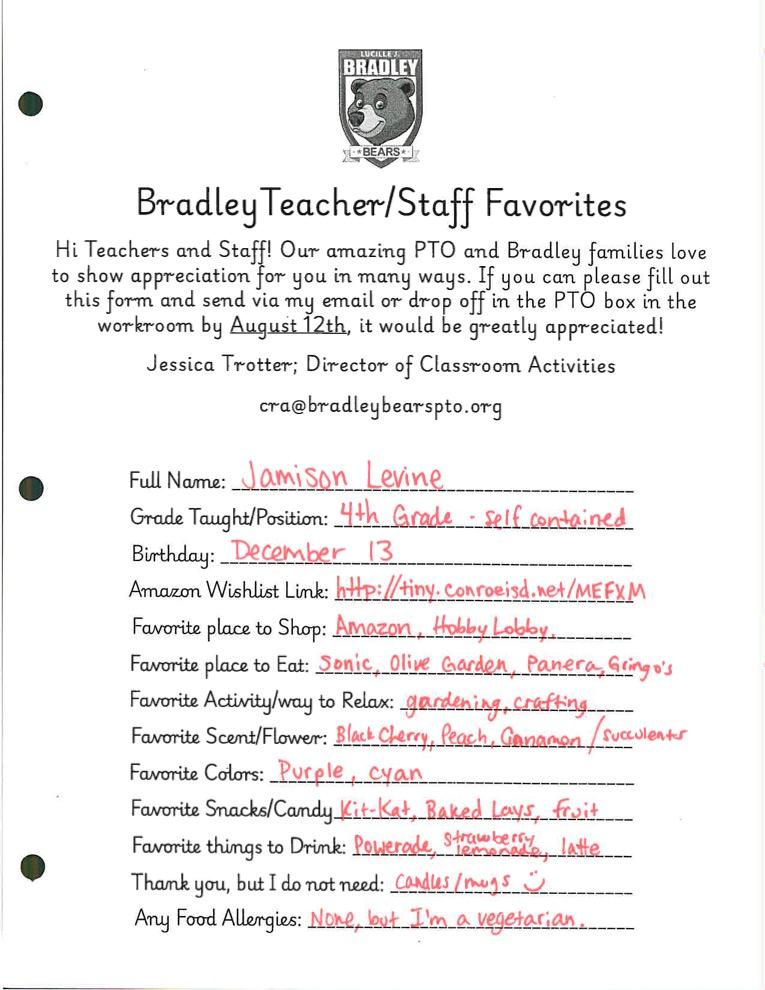 LUCILLE J.
BRADLEY
★BEARS★
Bradley Teacher/Staff Favorites
Hi Teachers and Staff! Our amazing PTO and Bradley families love
to show appreciation for you in many ways. If you can please fill out
this form and send via my email or drop off in the PTO box in the
workroom by August 12th, it would be greatly appreciated!
Jessica Trotter; Director of Classroom Activities
cra@bradleybearspto.org
Full Name: Jamison Levine
Grade Taught/Position: 4th Grade - self contained
Birthday: December 13
Amazon Wishlist Link: http://tiny.conroeisd.net/MEFXM
Favorite place to Shop: Amazon, Hobby Lobby
Favorite place to Eat: Sonic, Olive Garden, Panera, Gringo's
Favorite Activity/way to Relax: gardening, crafting
Favorite Scent/Flower: Black Cherry, Peach, Cinnamon / succulents
Favorite Colors: Purple, cyan
Favorite Snacks/Candy Kit-Kat, Baked Lays, fruit
Favorite things to Drink: Powerade, strawberry lemonade, latte
Thank you, but I do not need: candles/mugs
Any Food Allergies: None, but I'm a vegetarian.